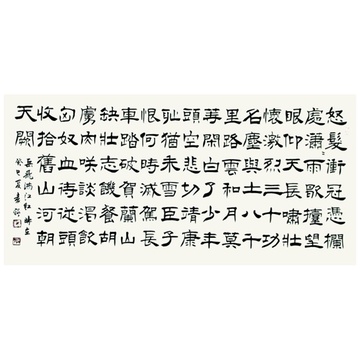 怒髮衝冠憑欄
處瀟〻雨歇擡望
眼仰天長嘯壯
懷激烈三十功
名塵與土八千
里路雲和月莫
等閒白了少年
頭空悲切靖康
恥猶未雪臣子
恨何時滅駕長
車踏破賀蘭山
缺壯志飢餐胡
虜肉咲談渴飲
匈奴血待從頭
收拾舊山河朝
天闕
岳飛滿江紅
癸巳夏